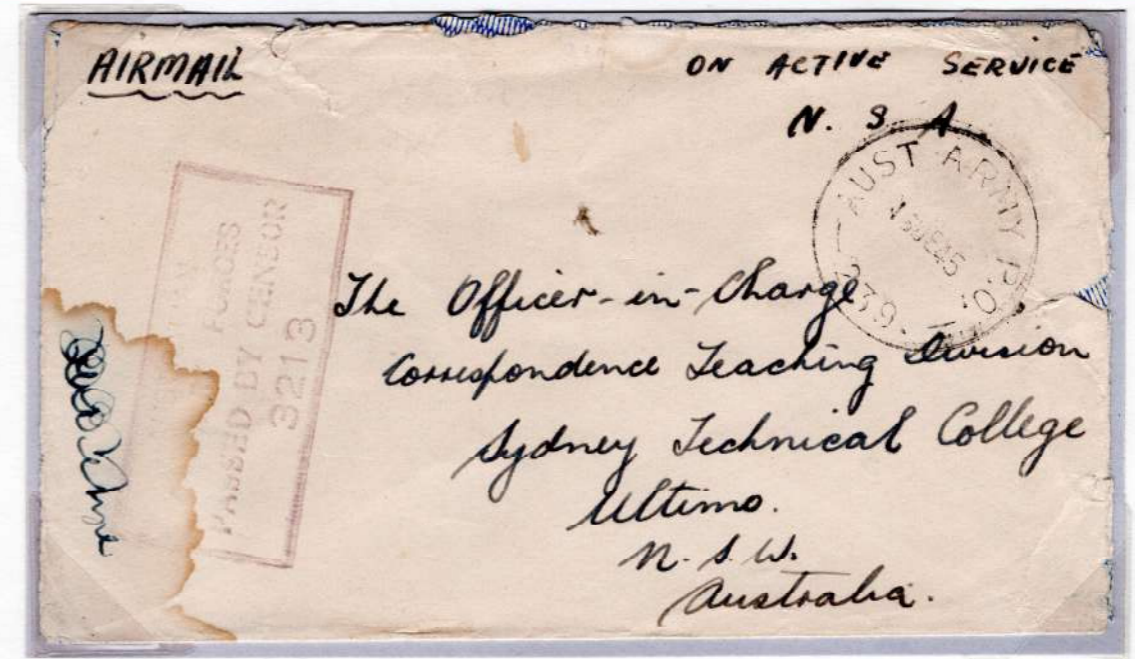 AIRMAIL
ON ACTIVE SERVICE
N. S. A
AUST ARMY P.O.
JE45
FORCES
PASSED BY CENSOR
3213
The Officer-in-Charge
Correspondence Teaching Division
Sydney Technical College
Ultimo.
N. S. W.
Australia.